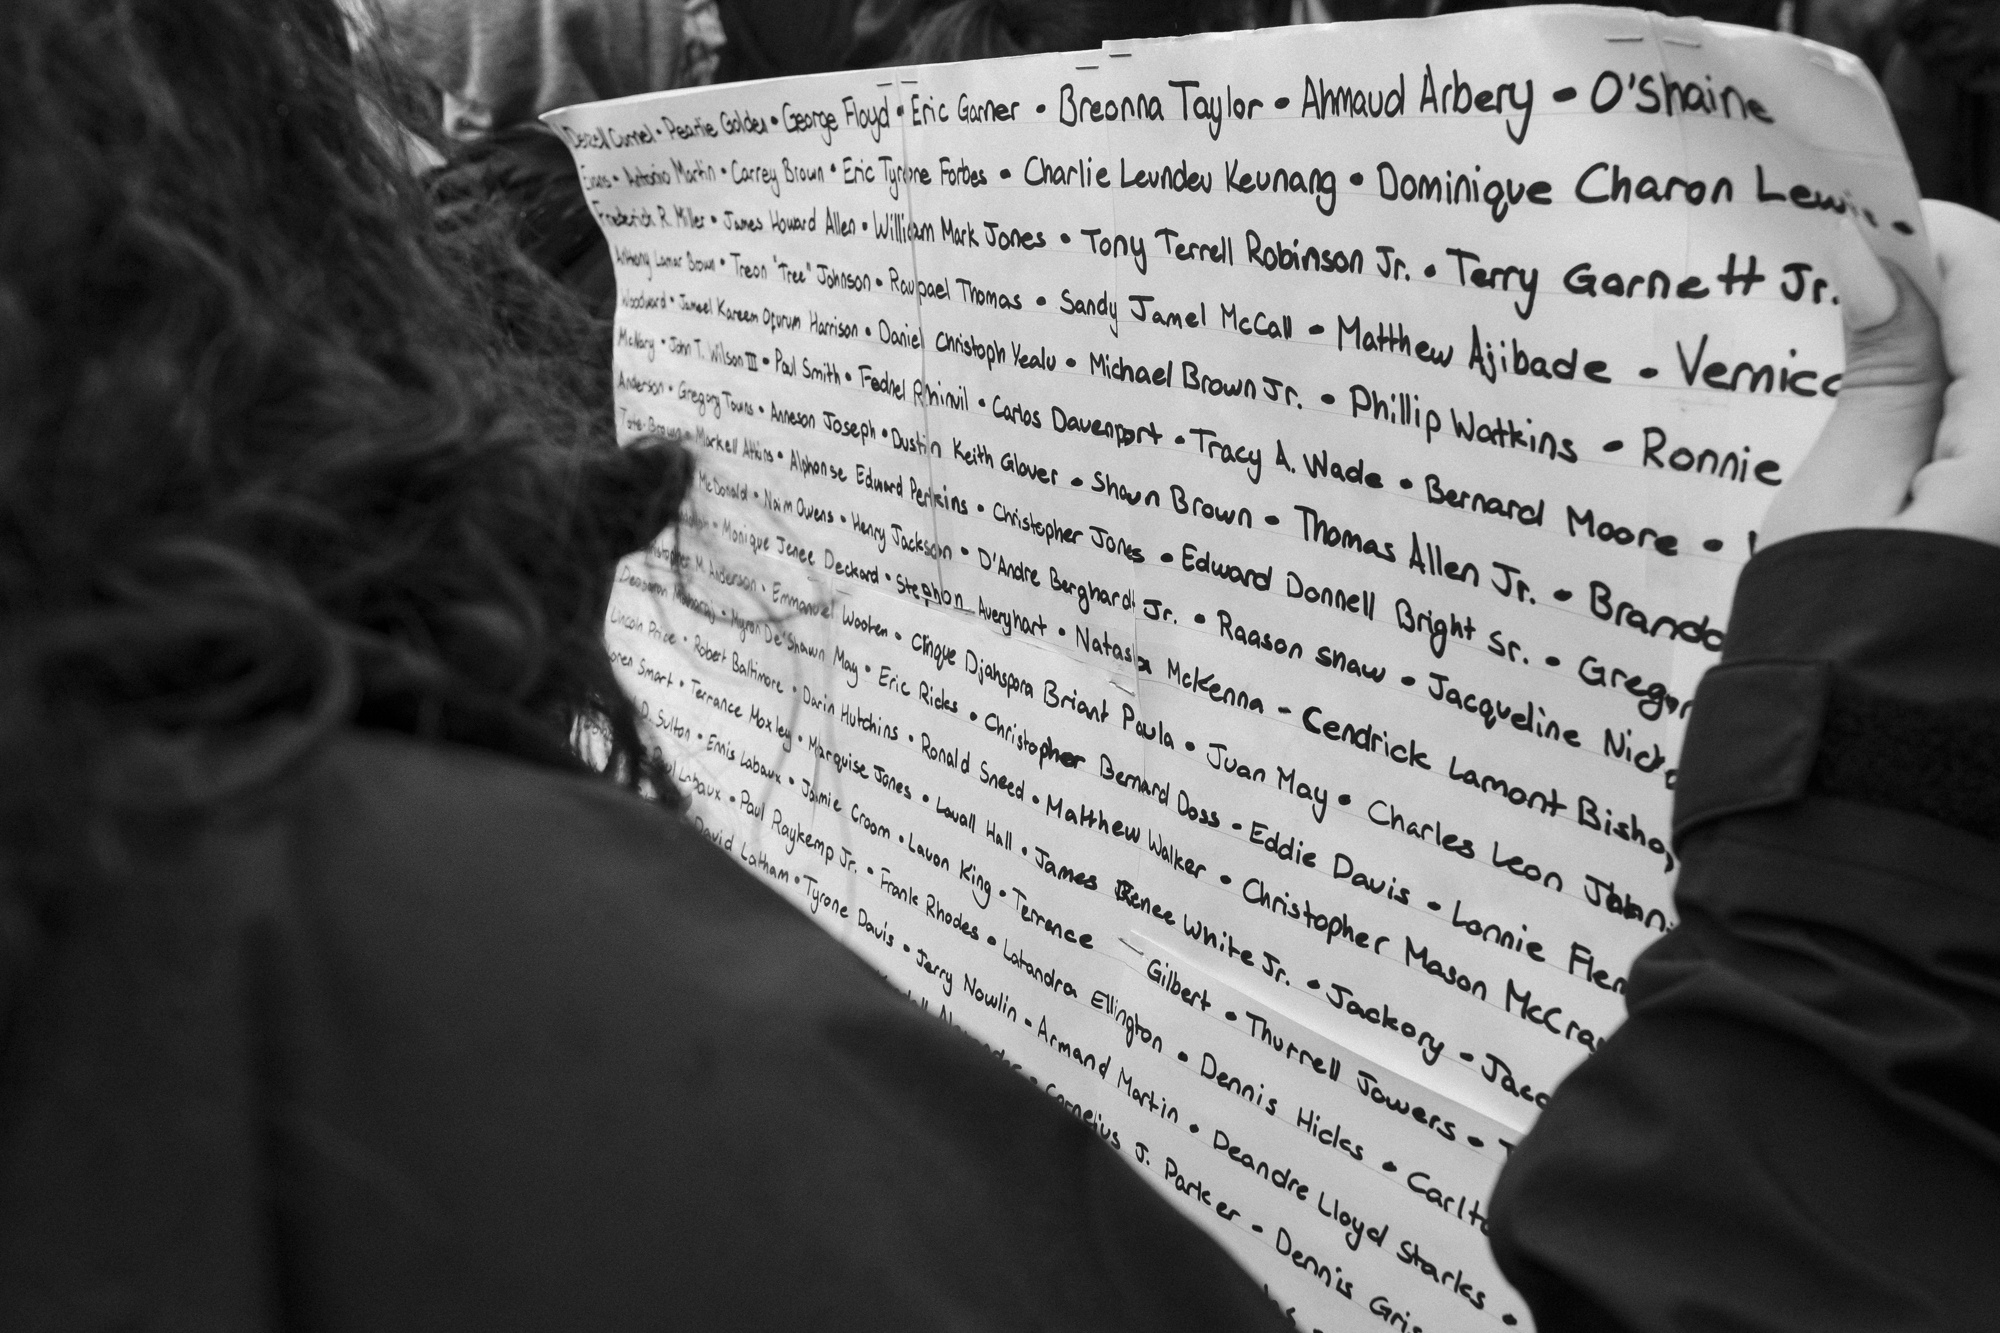 Pearlie Golden • George Floyd • Eric Garner • Breonna Taylor • Ahmaud Arbery • O'Shaine
Evans • Antonio Martin • Carrey Brown • Eric Tyrone Forbes • Charlie Leundeu Keunang • Dominique Charon Lewis •
Frederick R. Miller • James Howard Allen • William Mark Jones • Tony Terrell Robinson Jr. • Terry Garnett Jr.
Anthony Lamar Brown • Treon "Tree" Johnson • Raupael Thomas • Sandy Jamel McCall • Matthew Ajibade • Vernicc
Woodward • Jameel Kareem Ofurum Harrison • Daniel Christoph Yealu • Michael Brown Jr. • Phillip Watkins • Ronnie
McNary • John T. Wilson III • Paul Smith • Fednel Rhinvil • Carlos Davenport • Tracy A. Wade • Bernard Moore •
Anderson • Gregory Towns • Anneson Joseph • Dustin Keith Glover • Shaun Brown • Thomas Allen Jr. • Brando
Tate-Brown • Markell Atkins • Alphonse Edward Perkins • Christopher Jones • Edward Donnell Bright Sr. • Gregor
McDonald • Naim Owens • Henry Jackson • D'Andre Berghardt Jr. • Raason Shaw • Jacqueline Nich
• Monique Jenee Deckard • Stephon Averyhart • Natasha McKenna - Cendrick Lamont Bishop
Christopher M. Anderson • Emmanuel Wooten • Clinque Djahspora Briant Paula • Juan May • Charles Leon Johnn
Myron De'Shawn May • Eric Ricks • Christopher Bernard Doss • Eddie Davis • Lonnie Flem
Lincoln Price • Robert Baltimore • Darin Hutchins • Ronald Sneed • Matthew Walker • Christopher Mason McCray
oren Smart • Terrance Moxley • Marquise Jones • Lavall Hall • James Renee White Jr. • Jackory - Jaco
D. Sulton • Ennis Labaux • Jaimie Croom • Lavon King • Terrence Gilbert • Thurrell Jowers •
Paul Labaux • Paul Raykemp Jr. • Frank Rhodes • Latandra Ellington • Dennis Hicks • Carlto
David Latham • Tyrone Davis • Jerry Nowlin • Armand Martin • Deandre Lloyd Starks •
Cornelius J. Parker • Dennis Gris